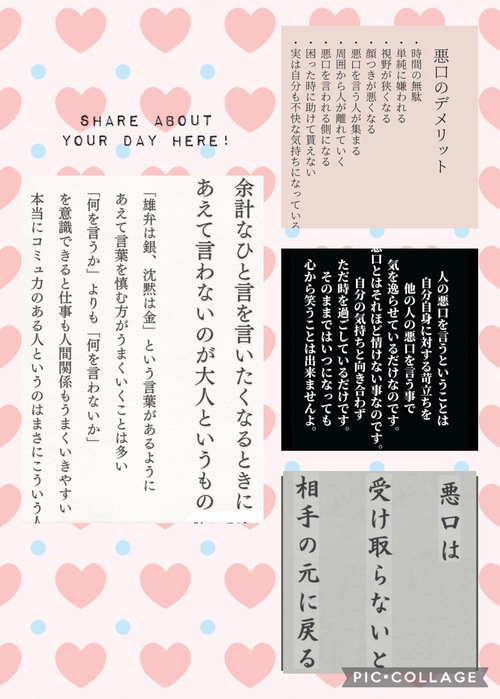 SHARE ABOUT
YOUR DAY HERE!
悪口のデメリット
・時間の無駄
・単純に嫌われる
・視野が狭くなる
・顔つきが悪くなる
・悪口を言う人が集まる
・周囲から人が離れていく
・悪口を言われる側になる
・困った時に助けて貰えない
・実は自分も不快な気持ちになっている
余計なひと言を言いたくなるときに
あえて言わないのが大人というもの
「雄弁は銀、沈黙は金」という言葉があるように
あえて言葉を慎む方がうまくいくことは多い
「何を言うか」よりも「何を言わないか」
を意識できると仕事も人間関係もうまくいきやすい
本当にコミュ力のある人というのはまさにこういう人
人の悪口を言うということは
自分自身に対する苛立ちを
他の人の悪口を言う事で
気を逸らせているだけなのです。
悪口とはそれほど情けない事なのです。
自分の気持ちと向き合わず
ただ時を過ごしているだけです。
そのままではいつになっても
心から笑うことは出来ませんよ。
悪口は
受け取らないと
相手の元に戻る
PIC•COLLAGE